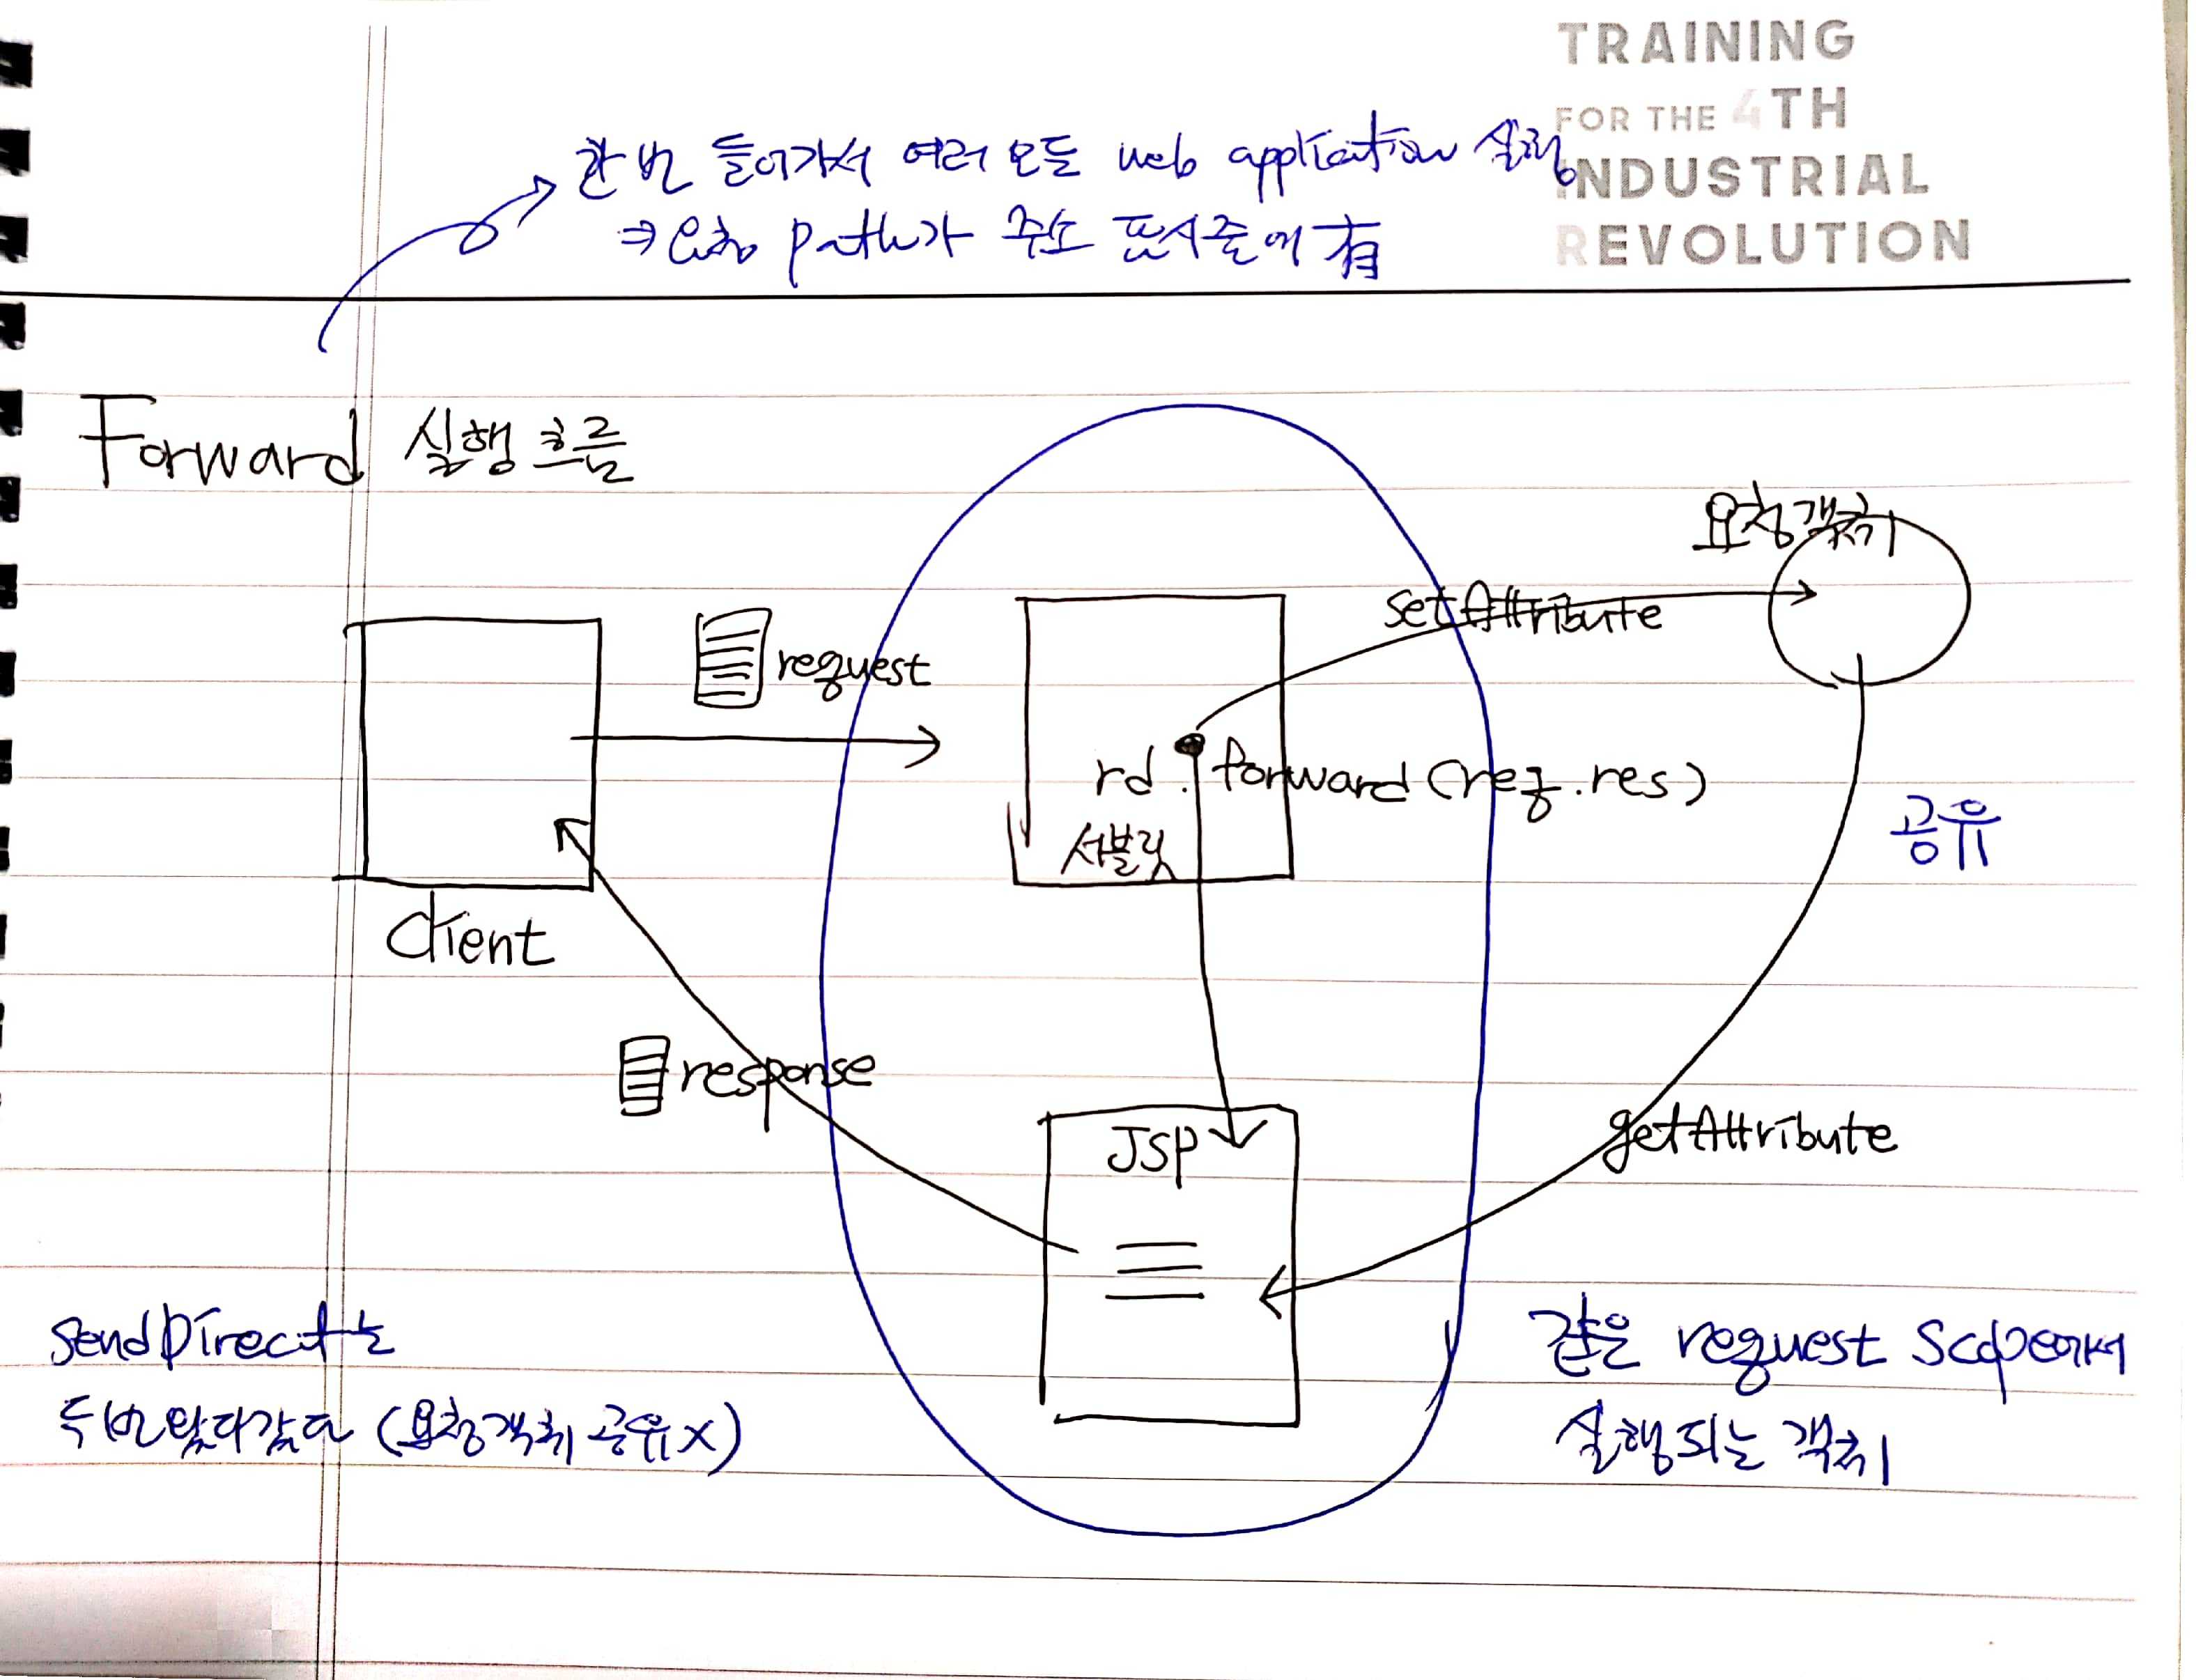 TRAINING
FOR THE 4TH
INDUSTRIAL
REVOLUTION
한번 들어가서 여러 모듈 web application 실행
⇒ 요청 path가 주소 표시줄에 有
Forward 실행 흐름
요청객체
setAttribute
request
rd. forward(req.res)
서블릿
공유
Client
response
JSP
getAttribute
sendDirect는
두번 왔다갔다 (요청객체 공유x)
같은 request Scope에서
실행되는 객체